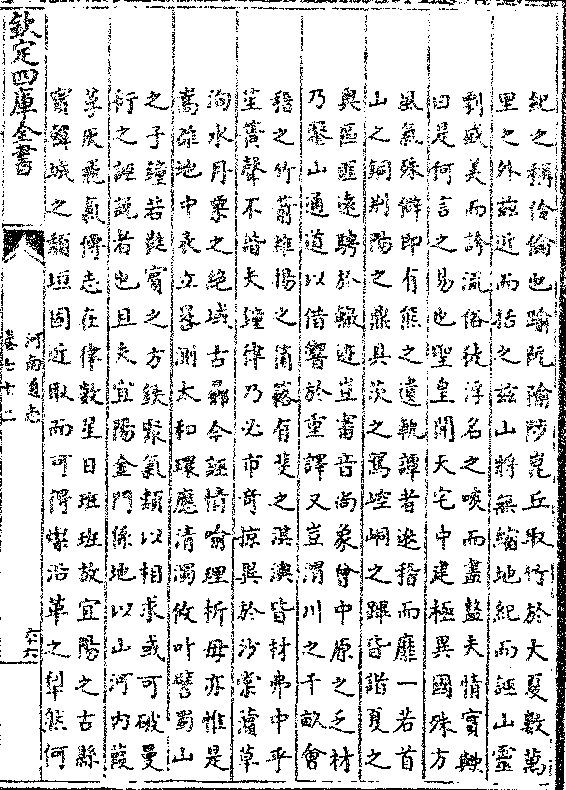 紀之稱伶倫也踰阮隃陟崑丘取竹於大夏數萬
里之外茲近而括之茲山將無縮地紀而誣山靈
剽盛美而誇流俗徒浮名之啖而盡盭夫情實歟
曰是何言之易也聖皇開天宅中建極異國殊方
風氣殊僻即有熊之遺軌譚者迷稽而靡一若首
山之銅荆陽之鼎具茨之駕崆峒之蹕皆諧夏之
奥區匪遠騁於緜迹豈審音尚象會中原之乏材
乃鑿山通道以借響於重譯又豈渭川之千畝會
稽之竹箭維揚之篠簜有斐之淇澳皆材弗中乎
笙簧聲不諧夫鐘律乃必市奇掠異於沙棠薲草
洵水丹粟之絶域古今誣情喻理析毋亦惟是
嵩地中表立晷測太和環應清濁攸叶譬蜀山
之子鐘若蕤賓之方鉄聚氣類以相求或可破曼
衍之誣説者也且夫宜陽金門係地以山河内葭
莩灰飛氣傳志在律數星日班班故宜陽之古縣
實韓城之頽垣固近取而可得沿革之犂然何
欽定四庫全書
河南通志
卷七十二
六十六